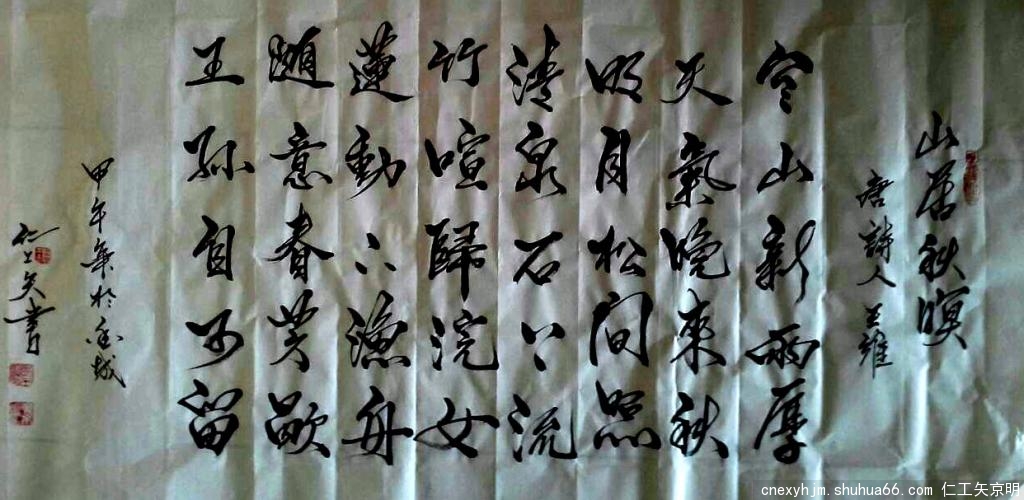 山居秋暝
唐詩人王維
空山新雨厚
天氣晚來秋
明月松間照
清泉石上流
竹喧歸浣女
蓮動下漁舟
隨意春芳歇
王孫自可留
甲午年於城
仁工矢書
cnexyhjm.shuhua66.com 仁工矢京明